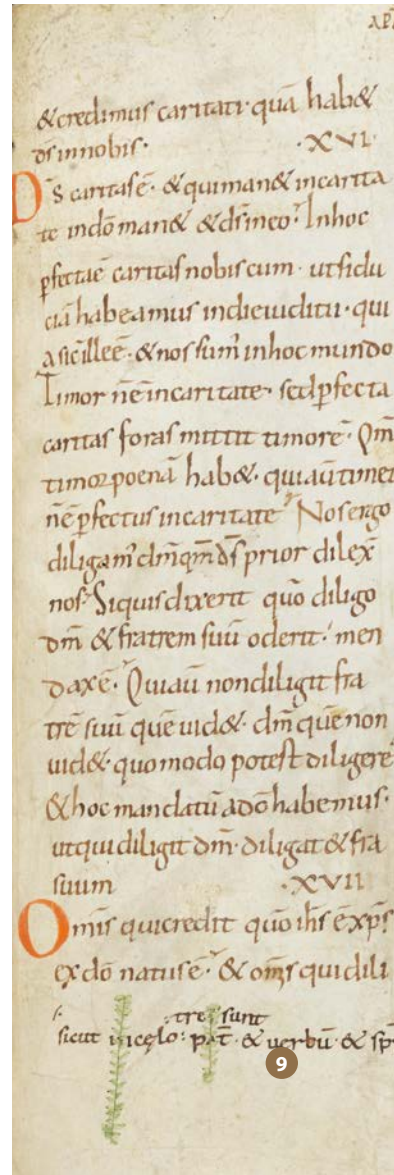 AP
&credimus caritati· quā hab&
ds innobis· ·XVI·
Ds caritas ē· &quiman& incarita
te indō man& &ds̄ ineo· Inhoc
ꝑfecta ē caritas nobiscum· utfidu
ciā habeamus indieiudicii· qui
a sic̄ ille ē· &nos sum̄ inhoc mundo
Timor n̄ ē incaritate· sedꝑfecta
caritas foras mittit timorē· Qm̄
timor poenā hab&· quiaūtimet
n̄ ē ꝑfectus incaritate· Nosergo
diligam̄ dm̄ qm̄ ds̄ prior dilex̄
nos· Siquis dixerit quō diligo
dm̄ &fratrem suū oderit· men
dax ē· Quiaū nondiligit fra
trē suū quē uid&· dm̄ quē non
uid&· quomodo potest diligere
&hoc mandatū adō habemus·
utqui diligit dm̄· diligat &fra
suum ·XVII
Omīs quicredit quō ih̄s ē xp̄s
exdō natus ē· &om̄s quidili
tres sunt
sicut incęlo· pat̄· & uerbū· & sp̄s
9